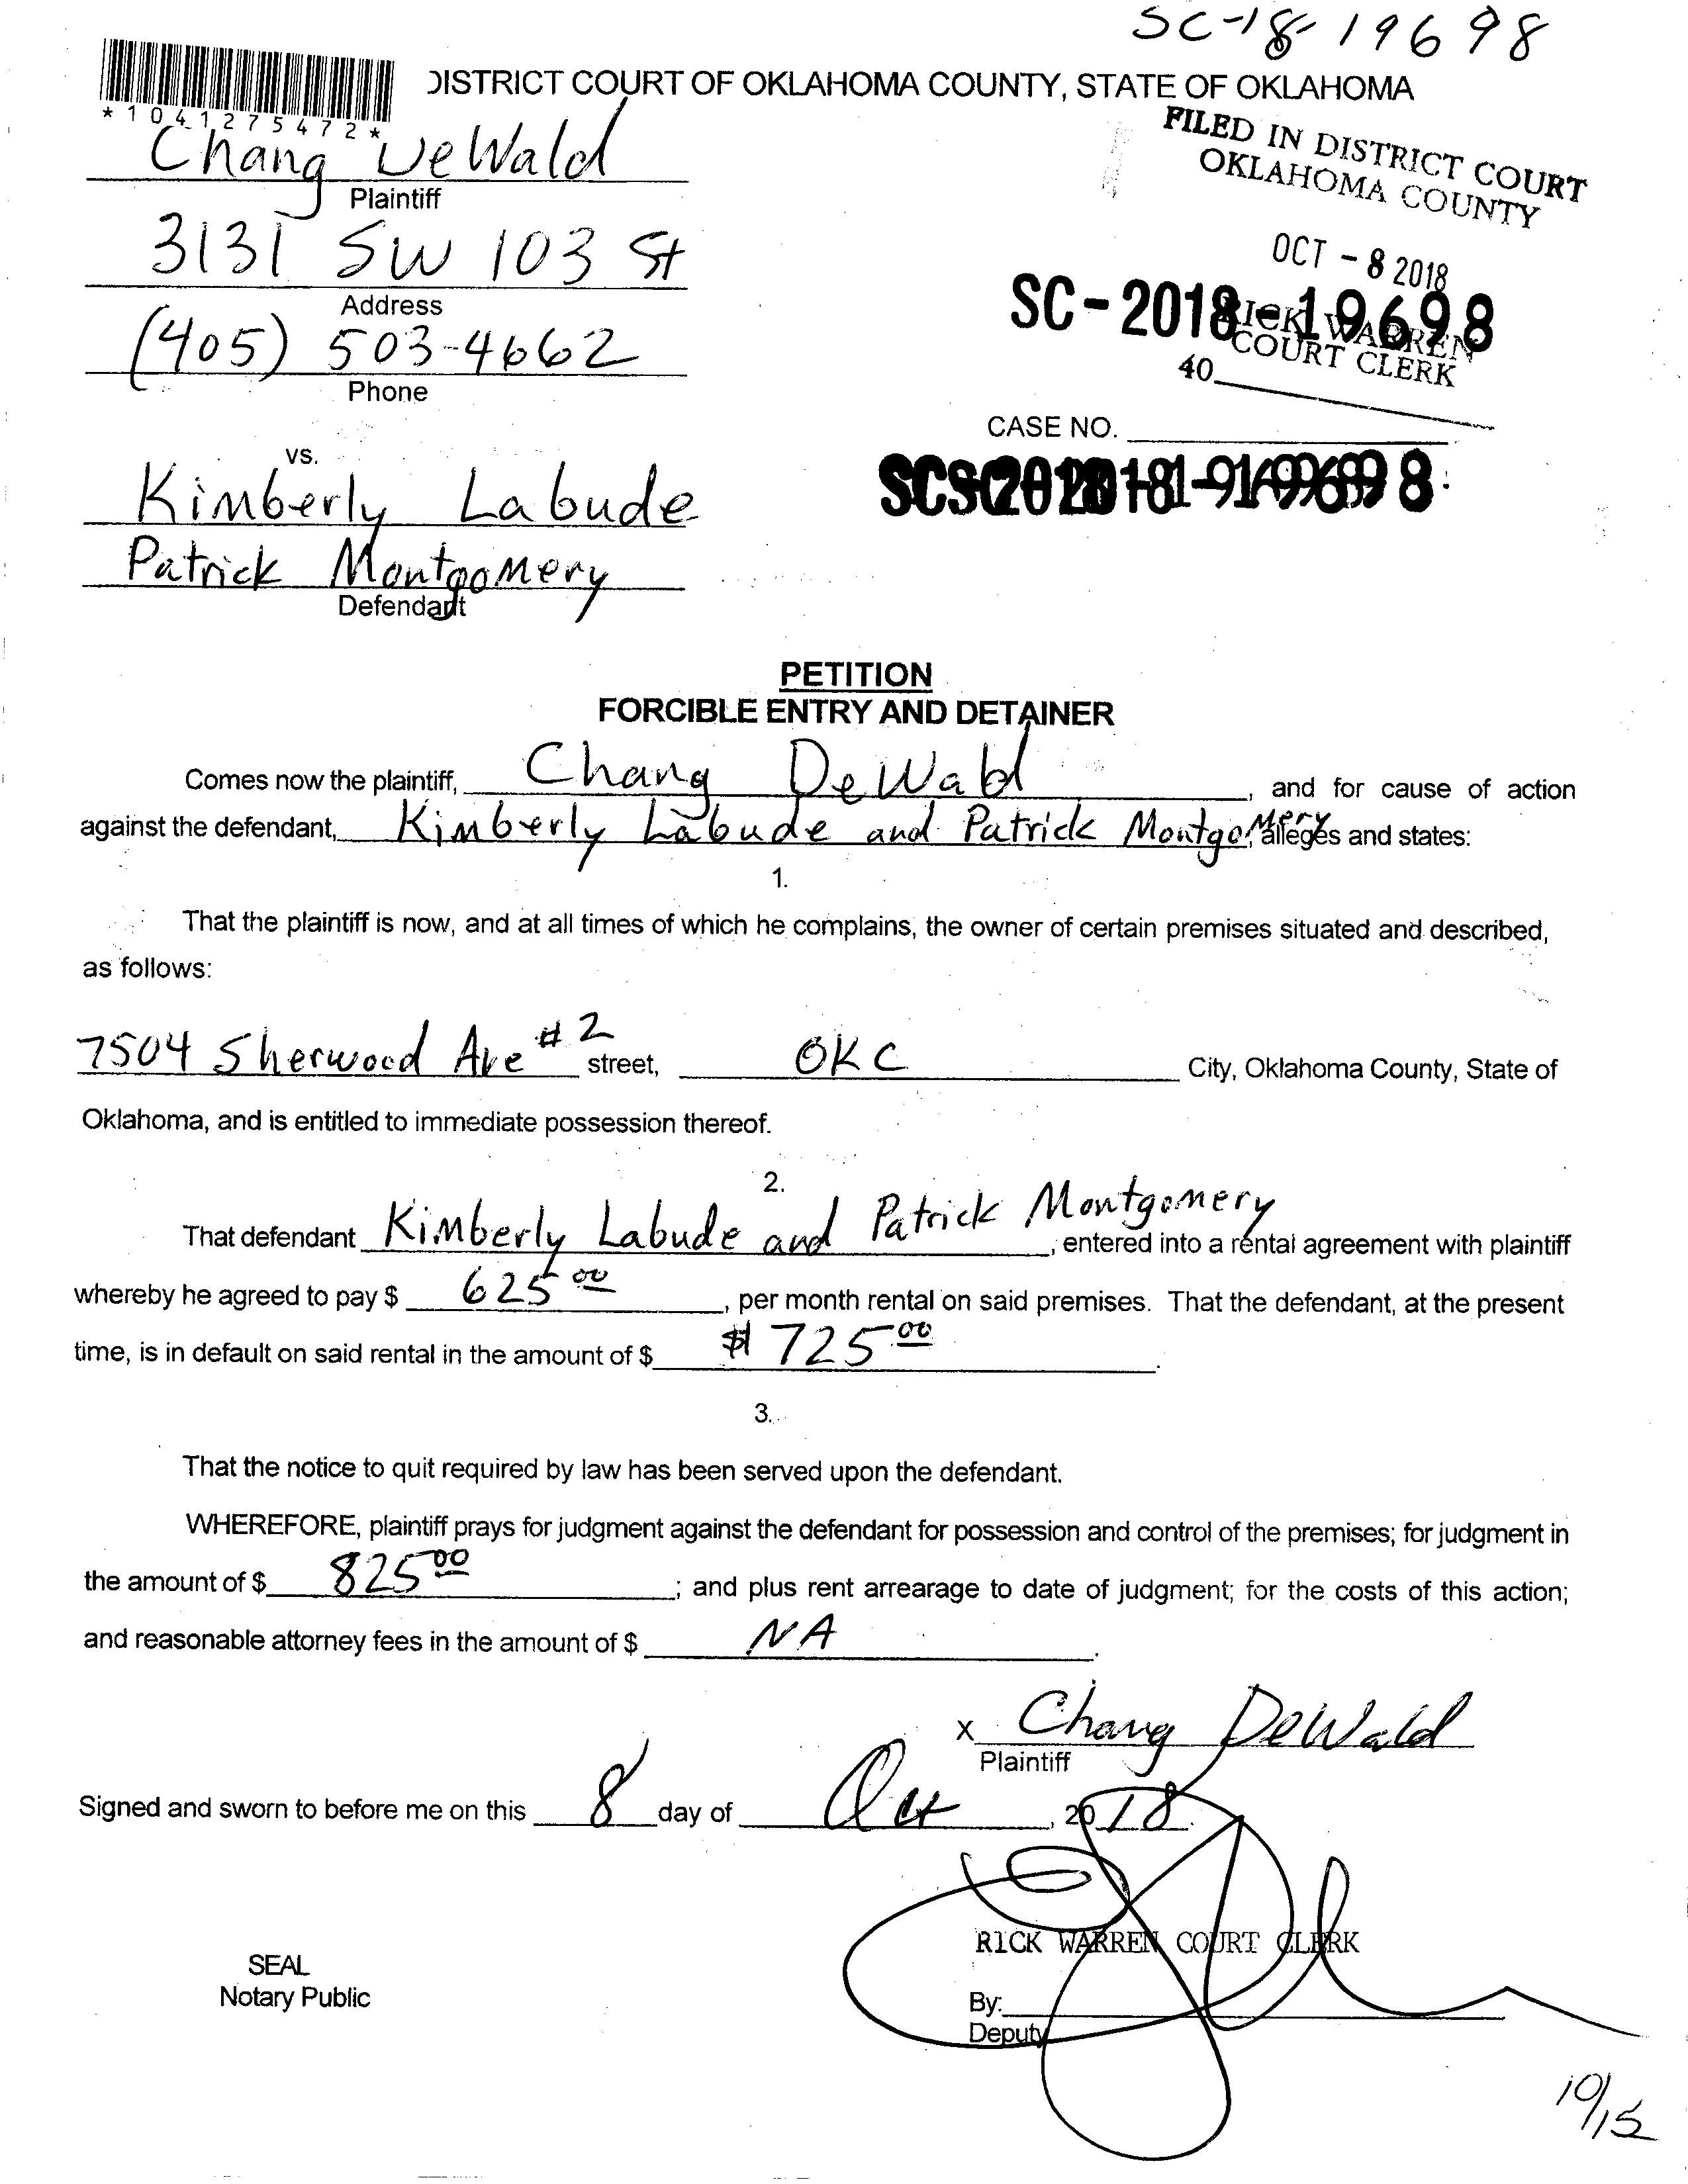 SC-18-19698
*1041275472*
DISTRICT COURT OF OKLAHOMA COUNTY, STATE OF OKLAHOMA
FILED IN DISTRICT COURT
OKLAHOMA COUNTY
Chang DeWald
Plaintiff
3131 SW 103 St
Address
OCT - 8 2018
SC-2018-19698
RICK WARREN
COURT CLERK
40
(405) 503-4662
Phone
CASE NO.
vs.
Kimberly Labude
Patrick Montgomery
Defendant
PETITION
FORCIBLE ENTRY AND DETAINER
Comes now the plaintiff, Chang DeWald, and for cause of action
against the defendant, Kimberly Labude and Patrick Montgomery, alleges and states:
1.
That the plaintiff is now, and at all times of which he complains, the owner of certain premises situated and described,
as follows:
7504 Sherwood Ave #2 street, OKC City, Oklahoma County, State of
Oklahoma, and is entitled to immediate possession thereof.
2.
That defendant Kimberly Labude and Patrick Montgomery, entered into a rental agreement with plaintiff
whereby he agreed to pay $ 625 00, per month rental on said premises. That the defendant, at the present
time, is in default on said rental in the amount of $ $ 725 00.
3.
That the notice to quit required by law has been served upon the defendant.
WHEREFORE, plaintiff prays for judgment against the defendant for possession and control of the premises; for judgment in
the amount of $ 825 00; and plus rent arrearage to date of judgment; for the costs of this action;
and reasonable attorney fees in the amount of $ NA.
X Chang DeWald
Plaintiff
Signed and sworn to before me on this 8 day of Oct, 2018.
RICK WARREN COURT CLERK
SEAL
Notary Public
By:
Deputy
10/15